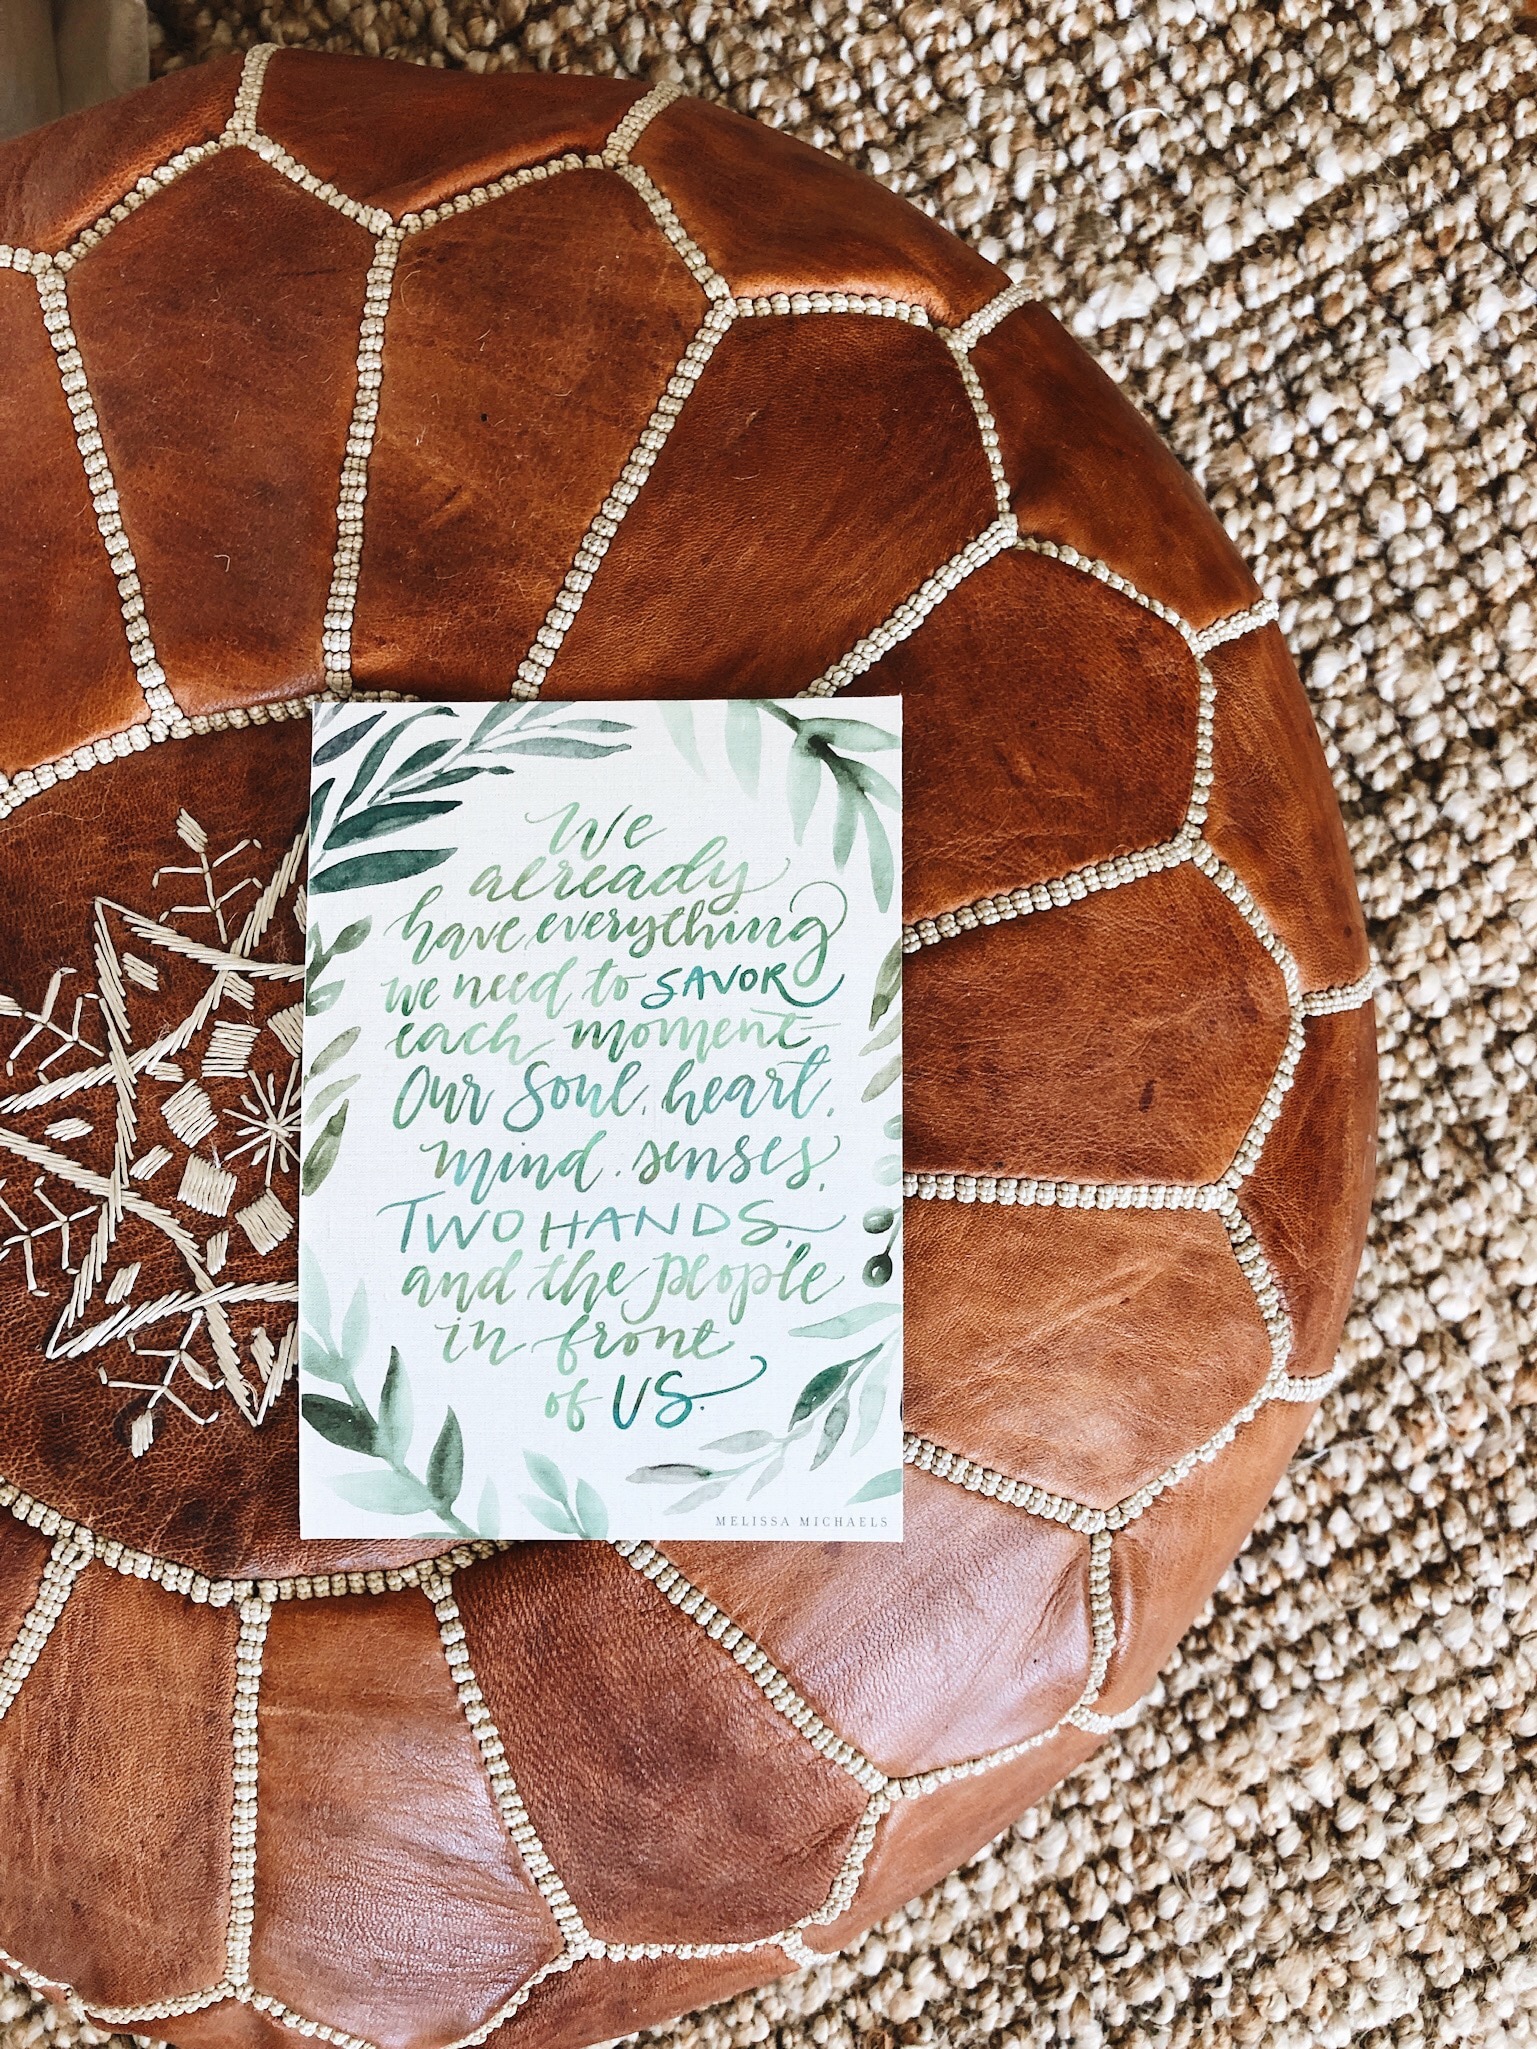 We
already
have everything
we need to SAVOR
each moment-
Our Soul, heart,
mind, senses,
TWO HANDS,
and the people
in front
of US.
MELISSA MICHAELS